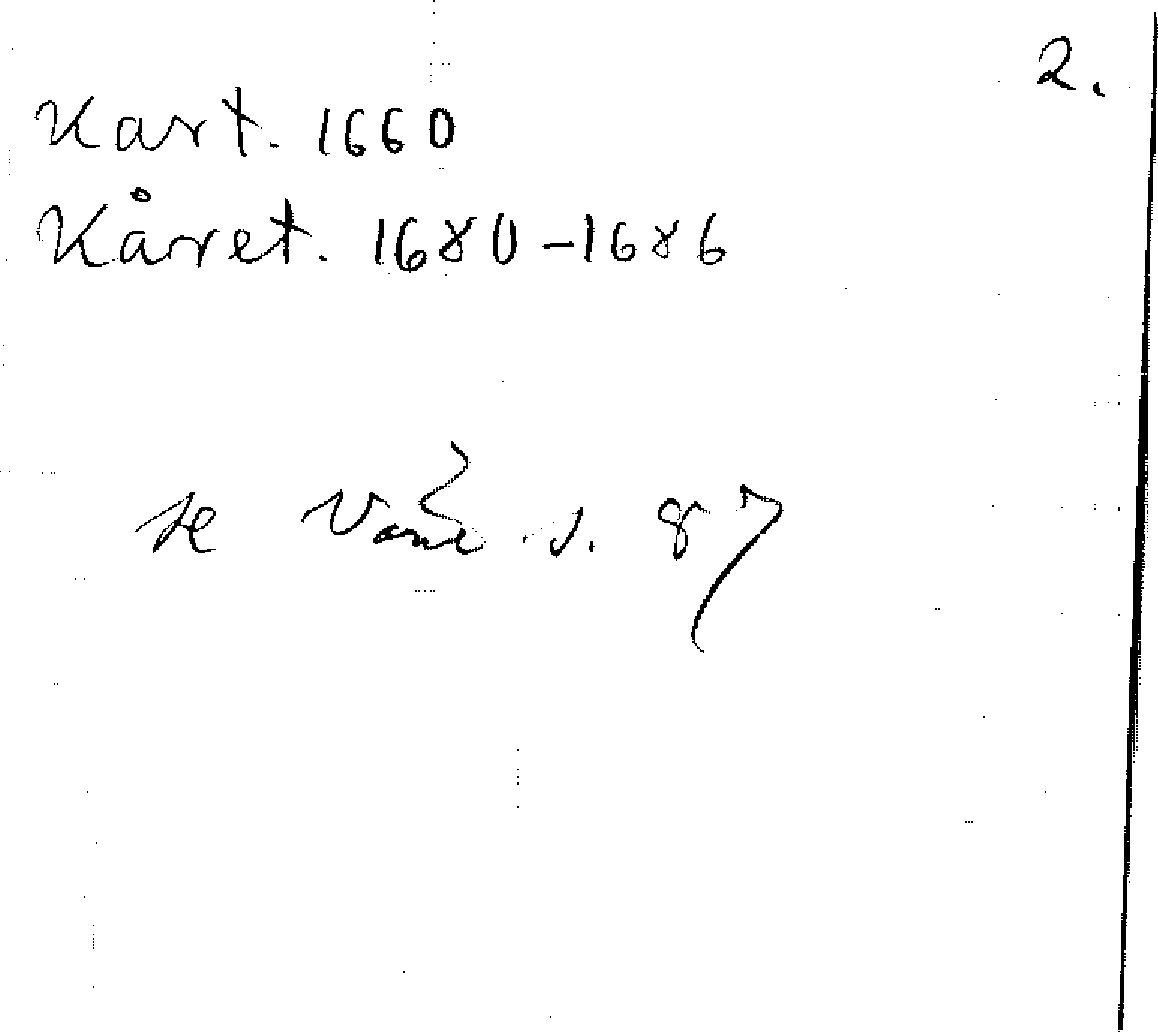 2.
Kart. 1660
Kåret. 1680-1686
se s. 87